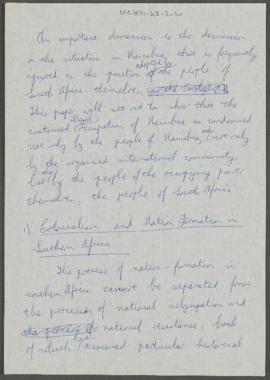 An important dimension to the discussion
on the situation in Namibia, that is frequently
ignored is the position of the people of
South Africa themselves
This paper will set out to show that the
continued illegal occupation of Namibia is condemned
not only by the people of Namibia, not only
by the organised international community,
but by the people of the occupying power
themselves, the people of South Africa
1) Colonialism and Nation Formation in
Southern Africa.
The process of nation-formation in
southern Africa cannot be separated from
the processes of national subjugation and
national resistance, both
of which assumed particular historical